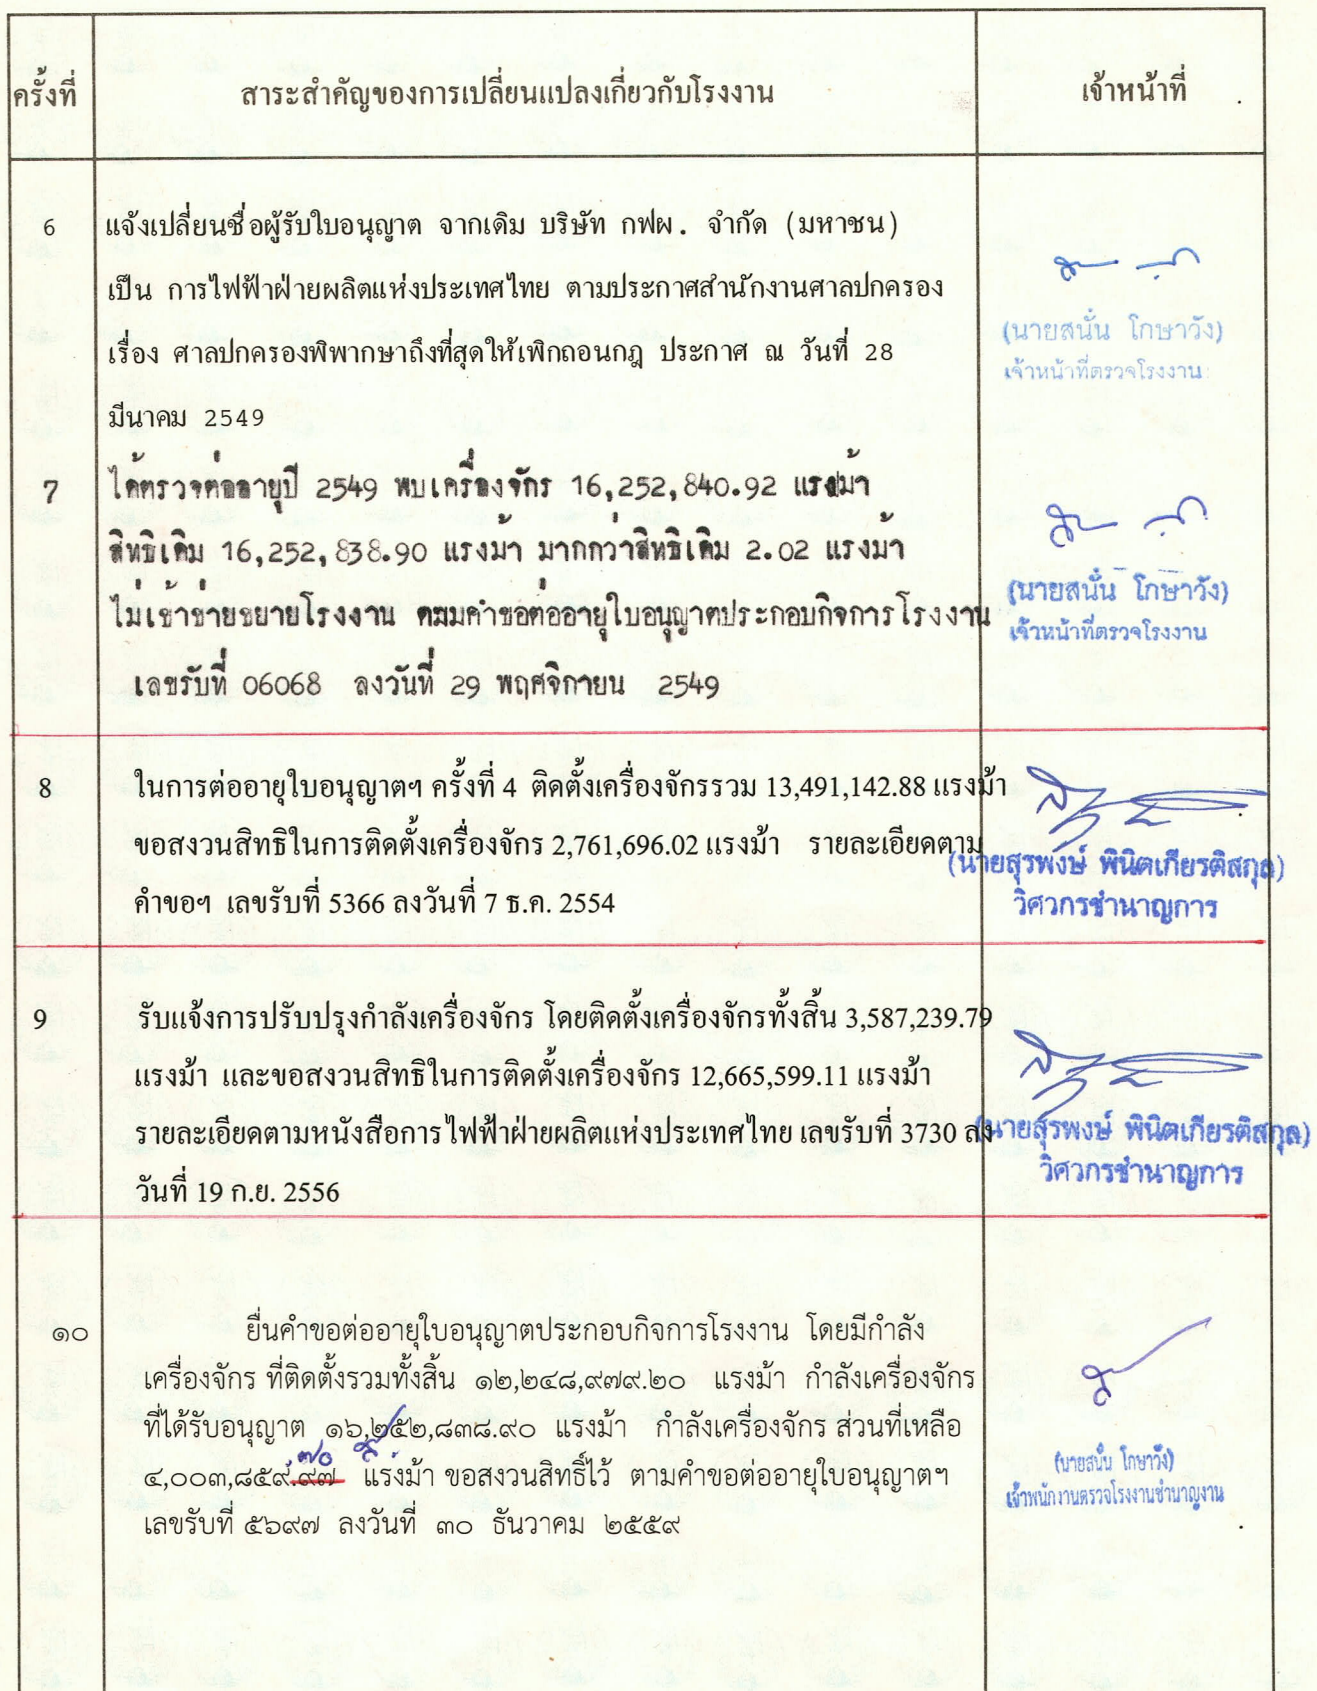 ครั้งที่ สาระสำคัญของการเปลี่ยนแปลงเกี่ยวกับโรงงาน เจ้าหน้าที่
6 แจ้งเปลี่ยนชื่อผู้รับใบอนุญาต จากเดิม บริษัท กฟผ. จำกัด (มหาชน)
เป็น การไฟฟ้าฝ่ายผลิตแห่งประเทศไทย ตามประกาศสำนักงานศาลปกครอง
เรื่อง ศาลปกครองพิพากษาถึงที่สุดให้เพิกถอนกฎ ประกาศ ณ วันที่ 28
มีนาคม 2549
(นายสนั่น โกษาวัง)
เจ้าหน้าที่ตรวจโรงงาน
7 ได้ตรวจต่ออายุปี 2549 พบเครื่องจักร 16,252,840.92 แรงม้า
สิทธิเดิม 16,252,838.90 แรงม้า มากกว่าสิทธิเดิม 2.02 แรงม้า
ไม่เข้าข่ายขยายโรงงาน ตามคำขอต่ออายุใบอนุญาตประกอบกิจการโรงงาน
เลขรับที่ 06068 ลงวันที่ 29 พฤศจิกายน 2549
(นายสนั่น โกษาวัง)
เจ้าหน้าที่ตรวจโรงงาน
8 ในการต่ออายุใบอนุญาตฯ ครั้งที่ 4 ติดตั้งเครื่องจักรรวม 13,491,142.88 แรงม้า
ขอสงวนสิทธิในการติดตั้งเครื่องจักร 2,761,696.02 แรงม้า รายละเอียดตาม
คำขอฯ เลขรับที่ 5366 ลงวันที่ 7 ธ.ค. 2554
(นายสุรพงษ์ พินิตเกียรติสกุล)
วิศวกรชำนาญการ
9 รับแจ้งการปรับปรุงกำลังเครื่องจักร โดยติดตั้งเครื่องจักรทั้งสิ้น 3,587,239.79
แรงม้า และขอสงวนสิทธิในการติดตั้งเครื่องจักร 12,665,599.11 แรงม้า
รายละเอียดตามหนังสือการไฟฟ้าฝ่ายผลิตแห่งประเทศไทย เลขรับที่ 3730 ลง
วันที่ 19 ก.ย. 2556
(นายสุรพงษ์ พินิตเกียรติสกุล)
วิศวกรชำนาญการ
๑๐ ยื่นคำขอต่ออายุใบอนุญาตประกอบกิจการโรงงาน โดยมีกำลัง
เครื่องจักร ที่ติดตั้งรวมทั้งสิ้น ๑๒,๒๔๘,๙๗๙.๒๐ แรงม้า กำลังเครื่องจักร
ที่ได้รับอนุญาต ๑๖,๒๕๒,๘๓๘.๙๐ แรงม้า กำลังเครื่องจักร ส่วนที่เหลือ
.๗๐
๔,๐๐๓,๘๕๙.๙๗ แรงม้า ขอสงวนสิทธิ์ไว้ ตามคำขอต่ออายุใบอนุญาตฯ
เลขรับที่ ๕๖๙๗ ลงวันที่ ๓๐ ธันวาคม ๒๕๕๙
(นายสนั่น โกษาวัง)
เจ้าพนักงานตรวจโรงงานชำนาญงาน